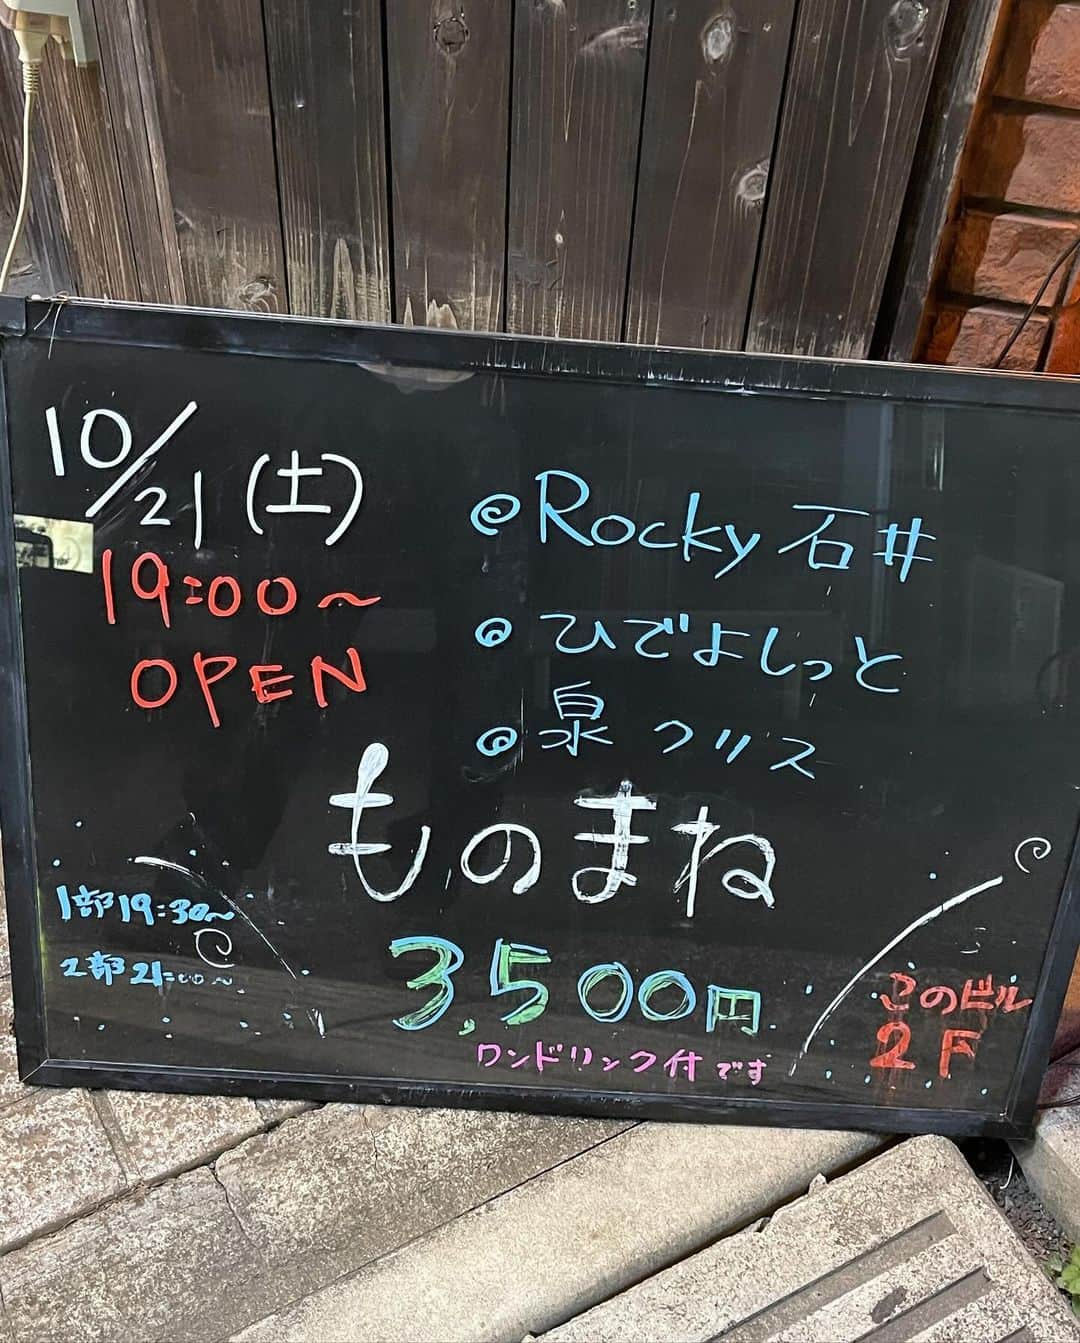 10/21(土)
19:00～
OPEN
@Rocky 石井
@ひでよしっと
@泉 クリス
ものまね
1部19:30～
2部21:00～
3,500円
ワンドリンク付です
このビル
2F